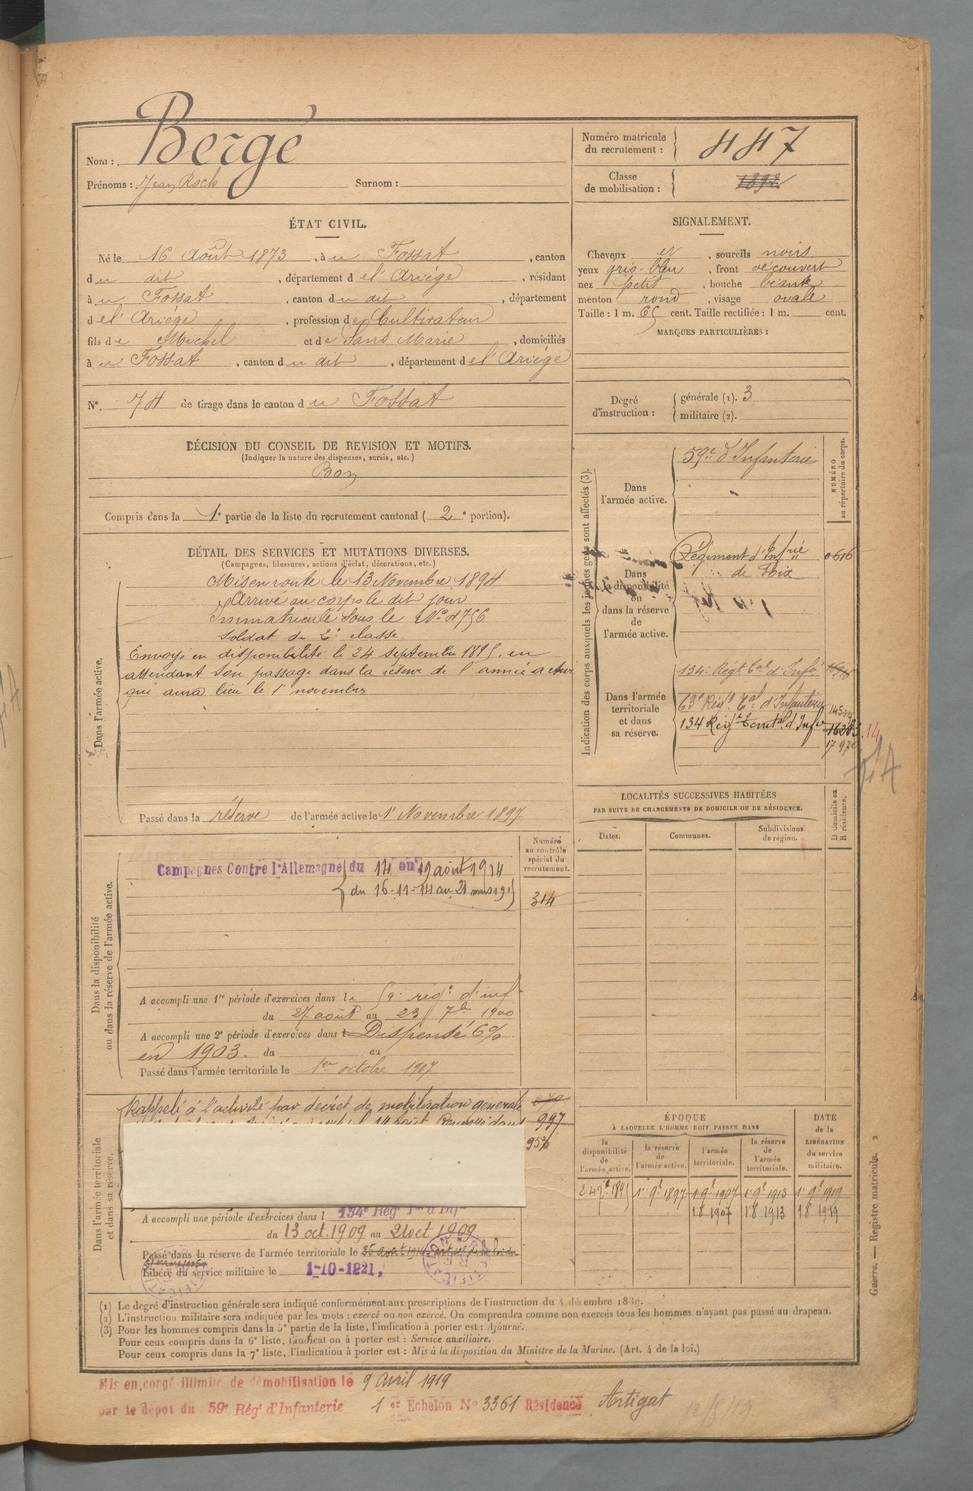 Nom : Bergé
Prénoms : Jean Roch Surnom :
Numéro matricule du recrutement : 447
Classe de mobilisation : 1892
ÉTAT CIVIL.
Né le 16 Août 1873, à u Fossat, canton
du dit, département de l'Ariège, résidant
à u Fossat, canton du dit, département
de l'Ariège, profession de Cultivateur
fils de Michel et de Sans Marie, domiciliés
à u Fossat, canton du dit, département de l'Ariège
N° 74 de tirage dans le canton du Fossat
DÉCISION DU CONSEIL DE REVISION ET MOTIFS.
(Indiquer la nature des dispenses, sursis, etc.)
Bon
Compris dans la 1e partie de la liste du recrutement cantonal (2e portion).
SIGNALEMENT.
Cheveux et, sourcils noirs
yeux gris-bleu, front découvert
nez petit, bouche béante
menton rond, visage ovale
Taille : 1 m. 65 cent. Taille rectifiée : 1 m. cent.
MARQUES PARTICULIÈRES :
Degré d'instruction : générale (1). 3
militaire (2).
DÉTAIL DES SERVICES ET MUTATIONS DIVERSES.
(Campagnes, blessures, actions d'éclat, décorations, etc.)
Dans l'armée active.
Mis en route le 13 Novembre 1894
Arrivé au corps le dit jour
Immatriculé sous le N° 4756
Soldat de 2e classe
Envoyé en disponibilité le 24 septembre 1895, en
attendant son passage dans la réserve de l'armée active
qui aura lieu le 1er novembre
Passé dans la réserve de l'armée active le 1er Novembre 1897
Indication des corps auxquels les jeunes gens sont affectés (3).
NUMÉRO au répertoire du corps.
Dans l'armée active.
59e d'Infanterie
Dans la disponibilité ou dans la réserve de l'armée active.
Régiment d'Infrie 0616
de Foix
Dans l'armée territoriale et dans sa réserve.
134e Regt tal d'Infie
63e Regt tal d'Infanterie 14594
134 Regt territal d'Infie 16283
LOCALITÉS SUCCESSIVES HABITÉES
PAR SUITE DE CHANGEMENTS DE DOMICILE OU DE RÉSIDENCE.
Dates. Communes. Subdivisions de région. D domicile ou R résidence.
Dans la disponibilité ou dans la réserve de l'armée active.
Numéro au contrôle spécial du recrutement.
314
Campagnes Contre l'Allemagne du 14 au 19 août 1914
du 16-11-14 au 21 mars 19
A accompli une 1re période d'exercices dans le 59e régt d'inf
du 27 août au 23 7bre 1900
A accompli une 2e période d'exercices dans Dispensé 6%
en 1903. du au
Passé dans l'armée territoriale le 1er octobre 1907
Dans l'armée territoriale et dans sa réserve.
Rappelé à l'activité par décret de mobilisation générale
997
957
A accompli une période d'exercices dans l 134e Rég Tal d'Inf
du 13 oct 1909 au 21 oct 1909
Passé dans la réserve de l'armée territoriale le
Libéré du service militaire le 1-10-1921,
ÉPOQUE
À LAQUELLE L'HOMME DOIT PASSER DANS
la disponibilité de l'armée active. la réserve de l'armée active. l'armée territoriale. la réserve de l'armée territoriale. DATE de la LIBÉRATION du service militaire.
24 7e 1895 1er 9e 1897 1er 9e 1907 1er 9e 1913 1er 9e 1919
1 8 1907 1 8 1913 1 8 1919
Guerre. — Registre matricule. 2
(1) Le degré d'instruction générale sera indiqué conformément aux prescriptions de l'instruction du 4 décembre 1889.
(2) L'instruction militaire sera indiquée par les mots : exercé ou non exercé. On comprendra comme non exercés tous les hommes n'ayant pas passé au drapeau.
(3) Pour les hommes compris dans la 5e partie de la liste, l'indication à porter est : Ajourné.
Pour ceux compris dans la 6e liste, l'indication à porter est : Service auxiliaire.
Pour ceux compris dans la 7e liste, l'indication à porter est : Mis à la disposition du Ministre de la Marine. (Art. 4 de la loi.)
Mis en congé illimité de démobilisation le 9 Avril 1919
par le dépôt du 59e Rég' d'Infanterie 1er Echelon No 3361 Résidence Artigat